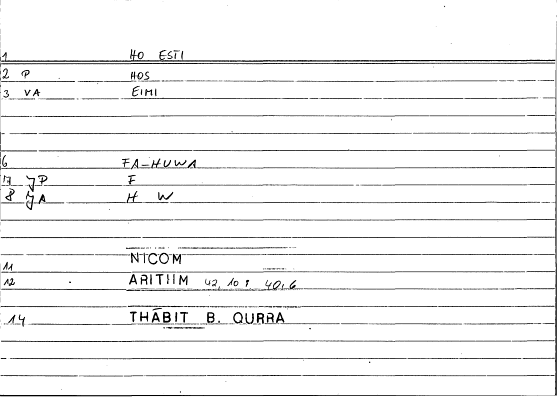 1 HO ESTI
2 P HOS
3 VA EIMI
6 FA-HUWA
7 JP F
8 JA H W
11 NICOM
12 ARITHM 42,10 : 40,6
14 THĀBIT B. QURRA